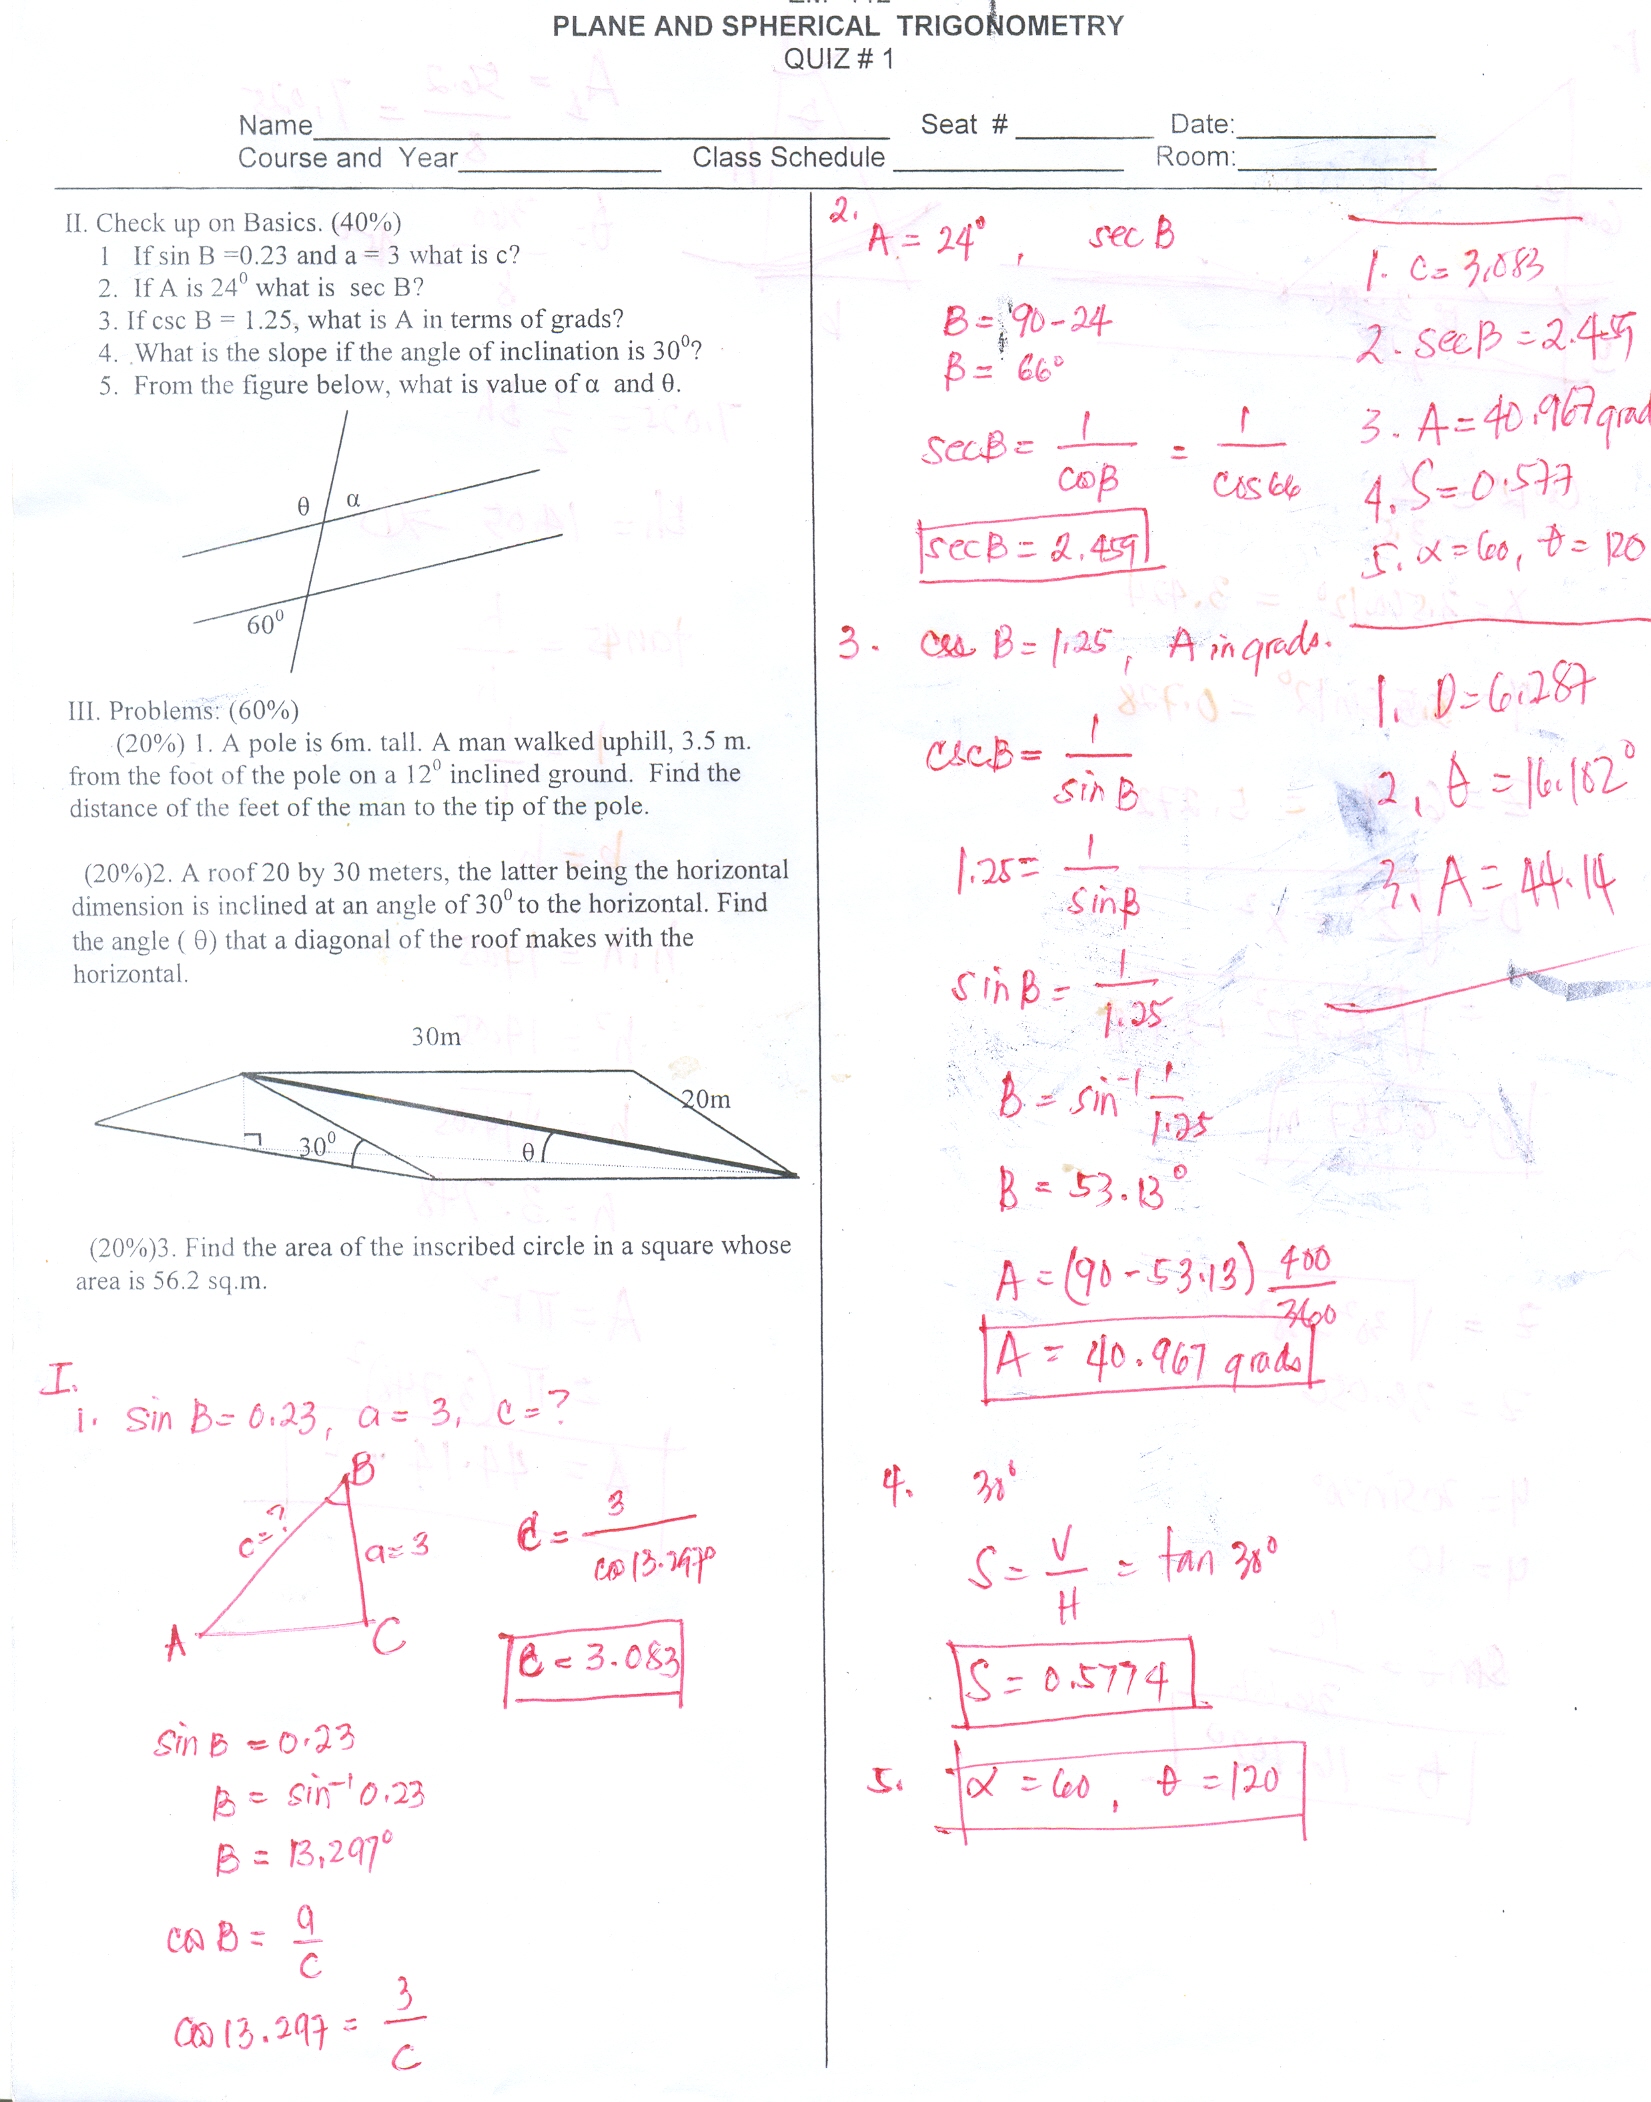 PLANE AND SPHERICAL TRIGONOMETRY
QUIZ # 1
Name____ Seat # ____ Date:____
Course and Year____ Class Schedule ____ Room:____
II. Check up on Basics. (40%)
1 If sin B =0.23 and a = 3 what is c?
2. If A is 24⁰ what is sec B?
3. If csc B = 1.25, what is A in terms of grads?
4. What is the slope if the angle of inclination is 30⁰?
5. From the figure below, what is value of α and θ.
θ α
60⁰
III. Problems: (60%)
(20%) 1. A pole is 6m. tall. A man walked uphill, 3.5 m.
from the foot of the pole on a 12⁰ inclined ground. Find the
distance of the feet of the man to the tip of the pole.
(20%)2. A roof 20 by 30 meters, the latter being the horizontal
dimension is inclined at an angle of 30⁰ to the horizontal. Find
the angle ( θ) that a diagonal of the roof makes with the
horizontal.
30m
20m
30⁰
θ
(20%)3. Find the area of the inscribed circle in a square whose
area is 56.2 sq.m.
I.
1. sin B = 0.23, a = 3, c = ?
B
c = ?
a = 3
A
C
c = 3 / cos 13.297°
c = 3.083
sin B = 0.23
B = sin⁻¹ 0.23
B = 13.297°
cos B = a / c
cos 13.297 = 3 / c
2.
A = 24°, sec B
B = 90 - 24
B = 66°
sec B = 1 / cos B = 1 / cos 66
sec B = 2.459
3. csc B = 1.25, A in grads.
csc B = 1 / sin B
1.25 = 1 / sin B
sin B = 1 / 1.25
B = sin⁻¹ 1 / 1.25
B = 53.13°
A = (90 - 53.13) 400 / 360
A = 40.967 grads
4. 30°
S = V / H = tan 30°
S = 0.5774
5. α = 60, θ = 120
1. c = 3.083
2. sec B = 2.459
3. A = 40.967 grad
4. S = 0.577
5. α = 60, θ = 120
1. D = 6.287
2. θ = 16.102°
3. A = 44.14